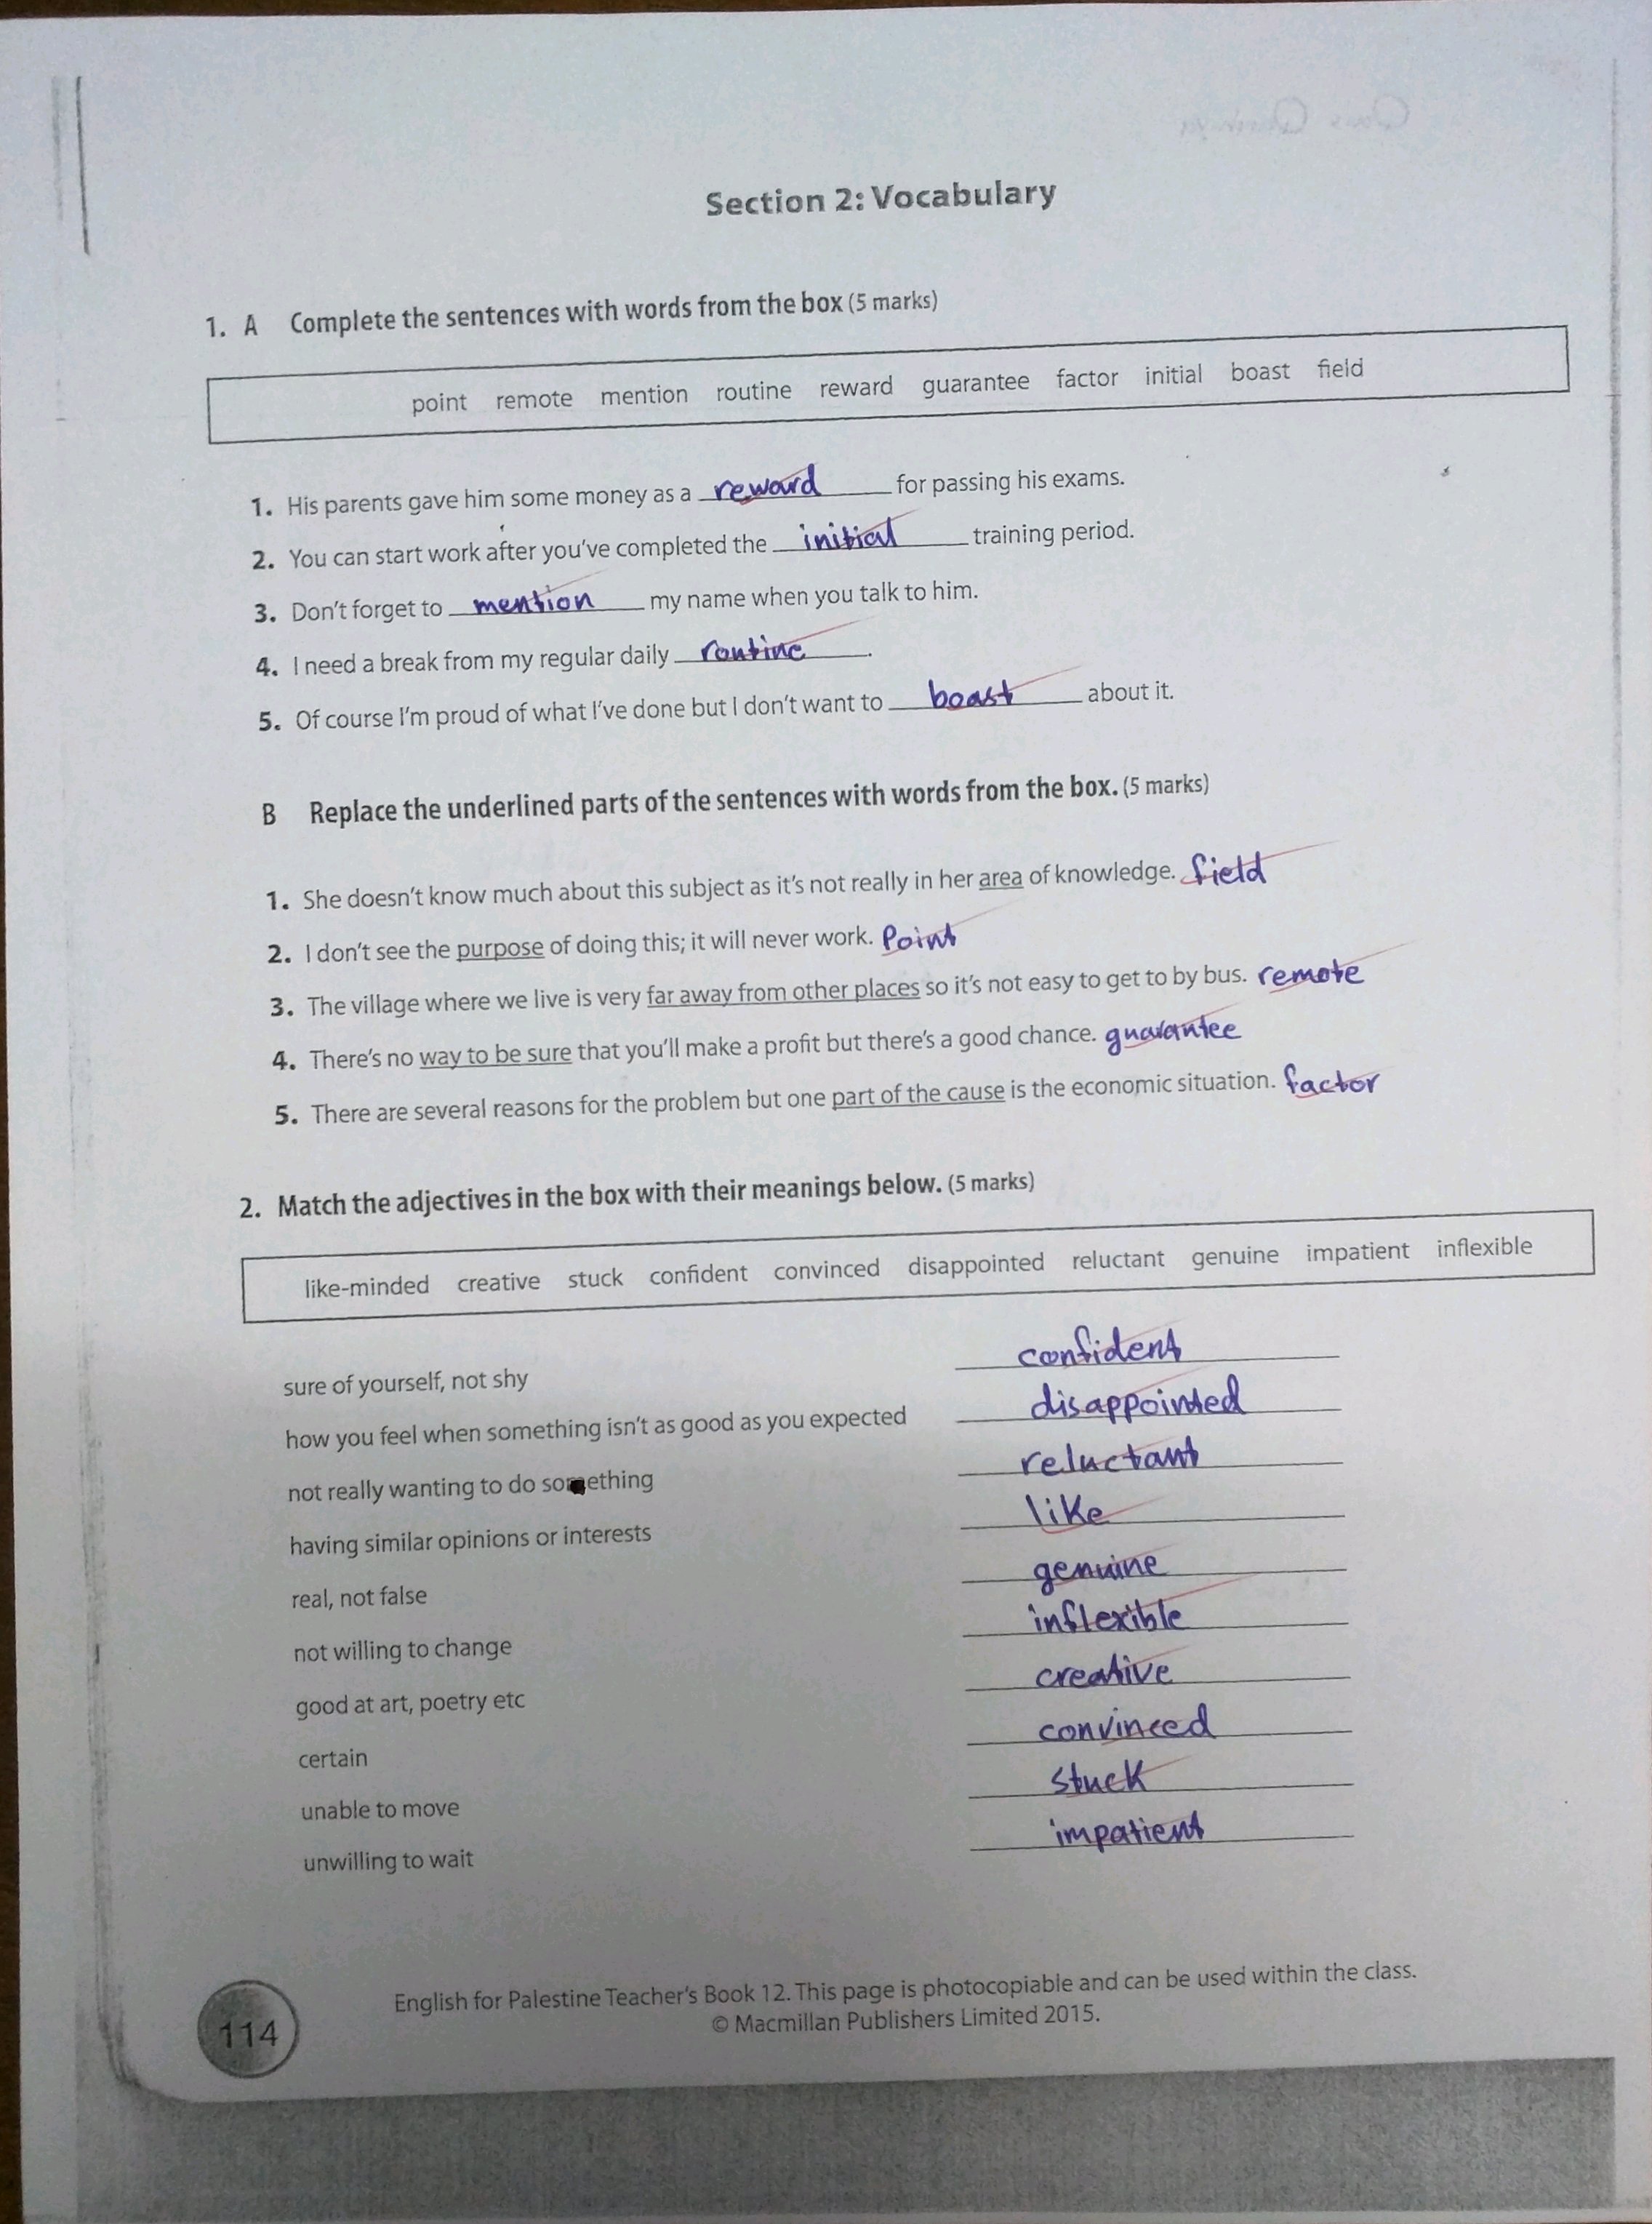 Section 2: Vocabulary
1. A Complete the sentences with words from the box (5 marks)
point remote mention routine reward guarantee factor initial boast field
1. His parents gave him some money as a reward for passing his exams.
2. You can start work after you've completed the initial training period.
3. Don't forget to mention my name when you talk to him.
4. I need a break from my regular daily routine.
5. Of course I'm proud of what I've done but I don't want to boast about it.
B Replace the underlined parts of the sentences with words from the box. (5 marks)
1. She doesn't know much about this subject as it's not really in her area of knowledge. field
2. I don't see the purpose of doing this; it will never work. Point
3. The village where we live is very far away from other places so it's not easy to get to by bus. remote
4. There's no way to be sure that you'll make a profit but there's a good chance. guarantee
5. There are several reasons for the problem but one part of the cause is the economic situation. factor
2. Match the adjectives in the box with their meanings below. (5 marks)
like-minded creative stuck confident convinced disappointed reluctant genuine impatient inflexible
sure of yourself, not shy confident
how you feel when something isn't as good as you expected disappointed
not really wanting to do something reluctant
having similar opinions or interests like
real, not false genuine
not willing to change inflexible
good at art, poetry etc creative
certain convinced
unable to move stuck
unwilling to wait impatient
English for Palestine Teacher's Book 12. This page is photocopiable and can be used within the class.
© Macmillan Publishers Limited 2015.
114